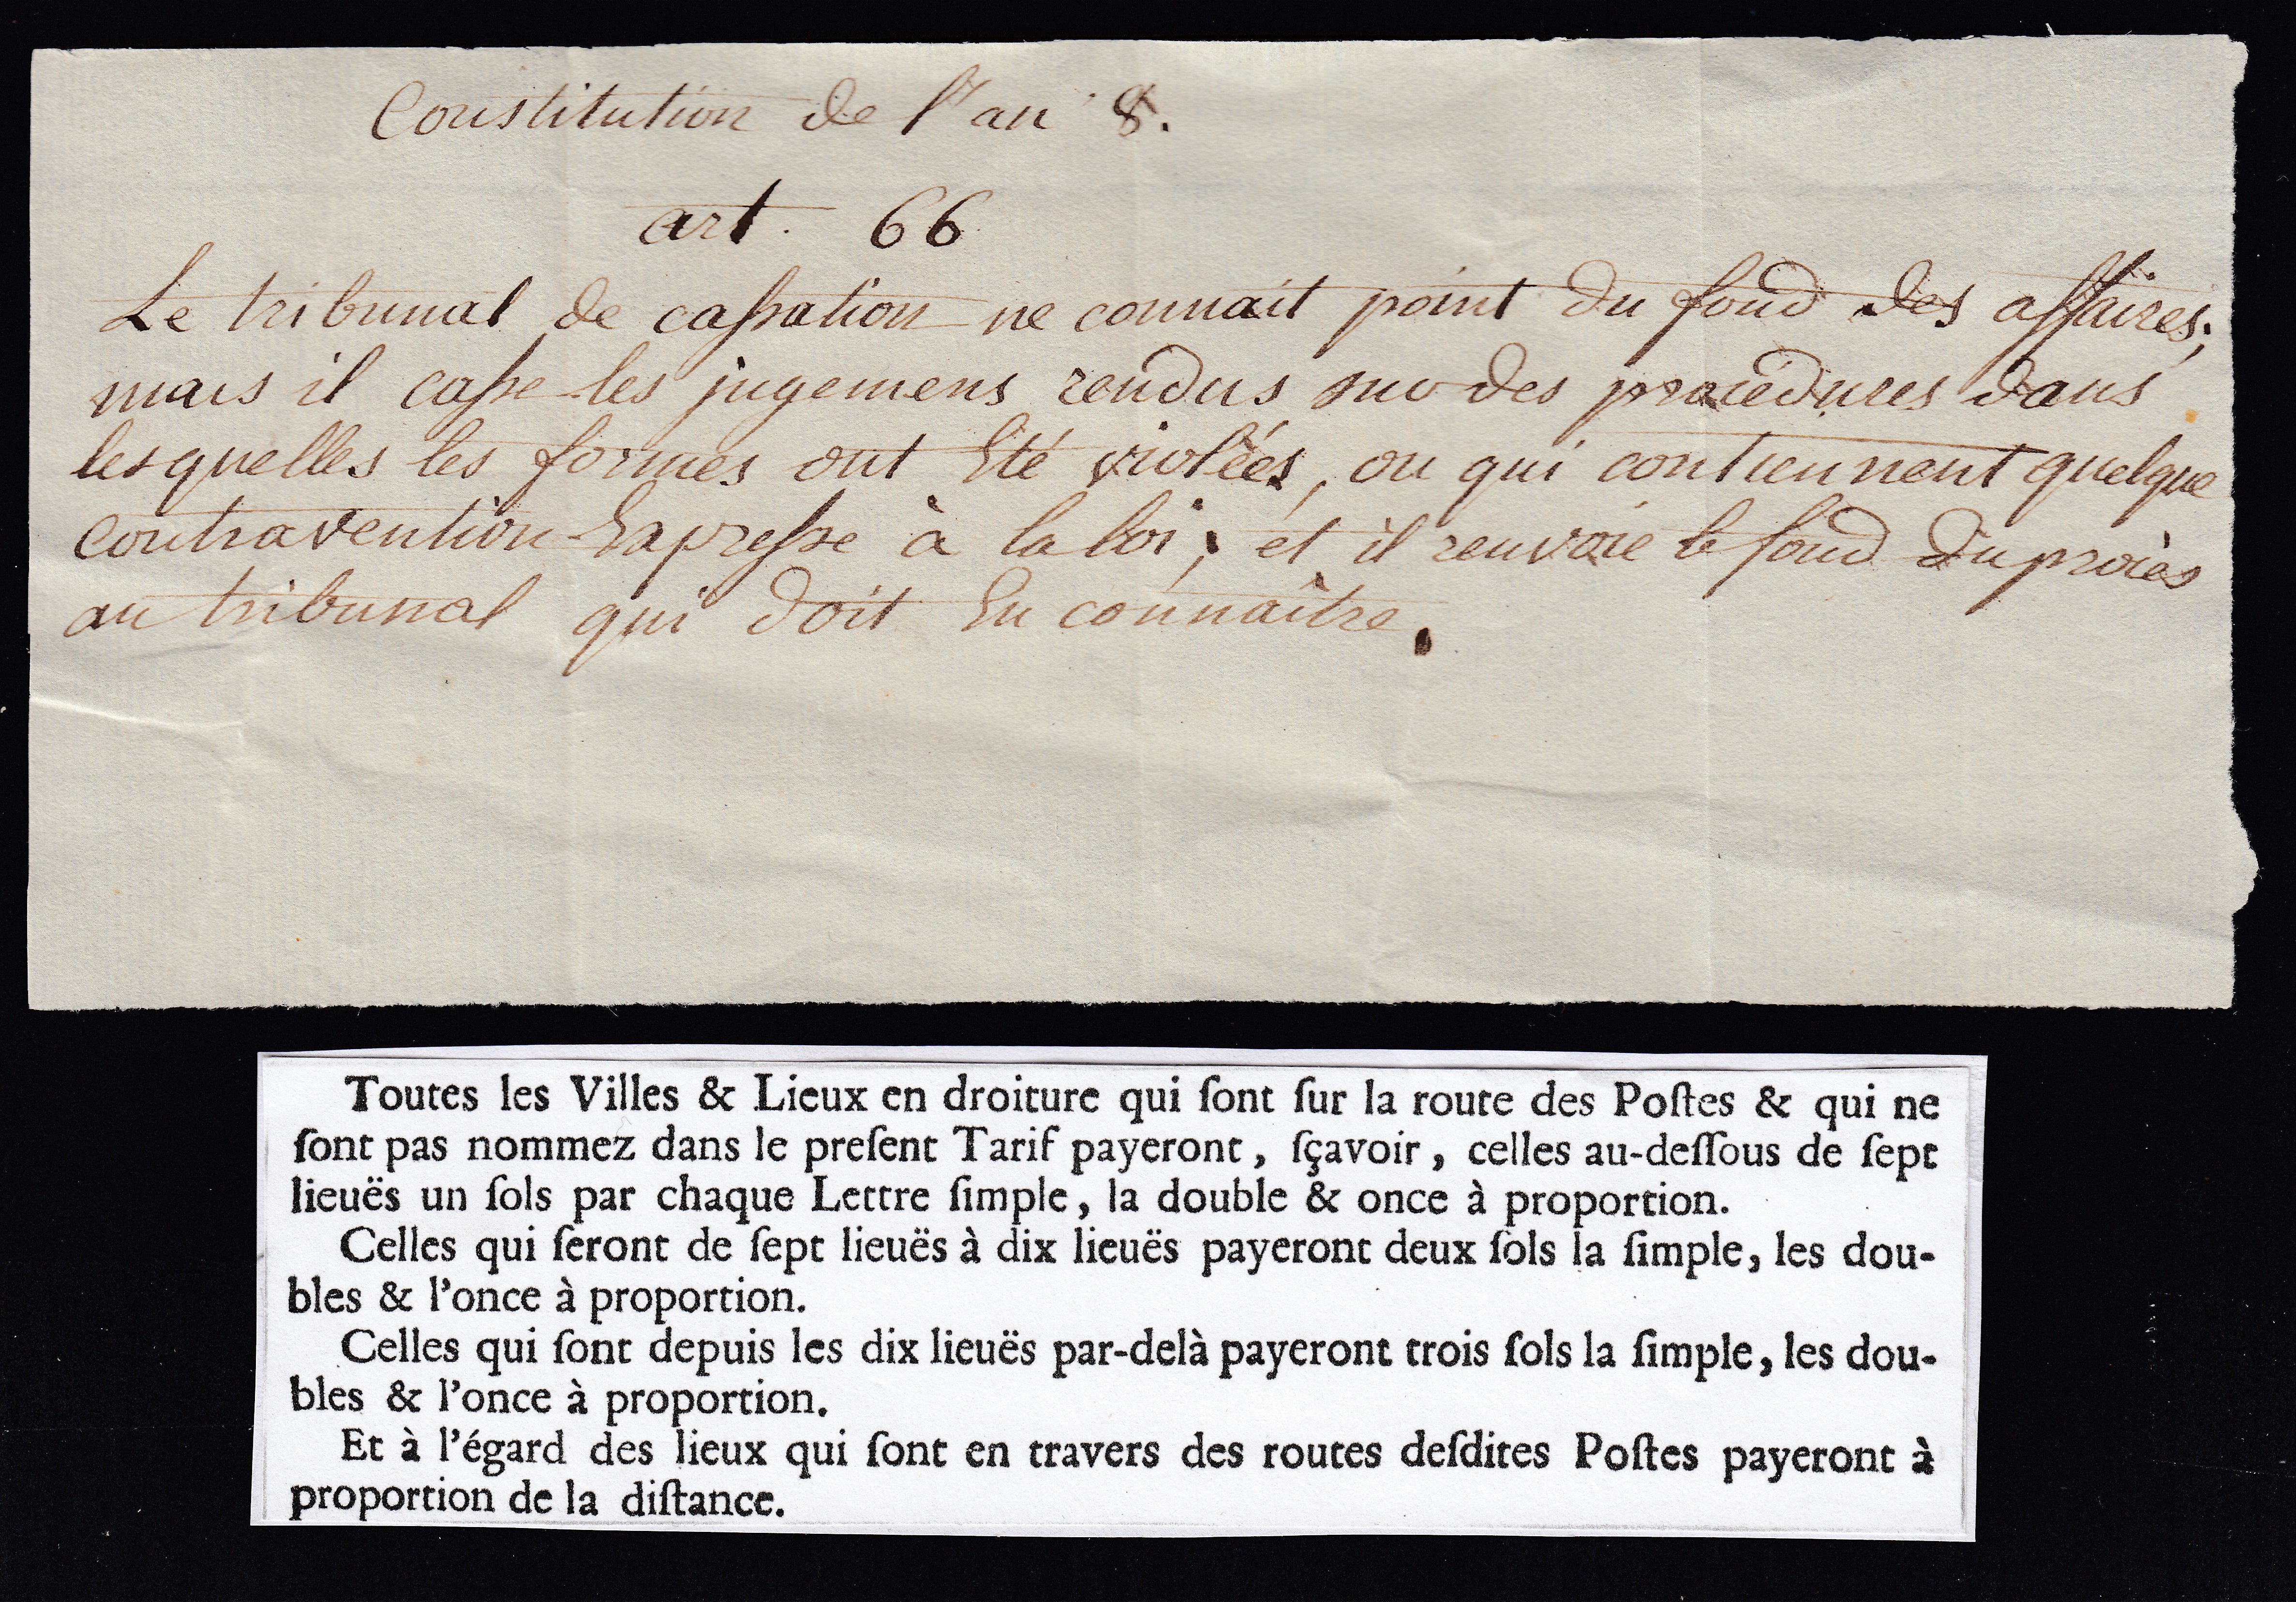 Constitution de l'an 8.
art. 66
Le tribunal de cassation ne connait point du fond des affaires;
mais il casse les jugemens rendus sur des procédures dans
lesquelles les formes ont été violées, ou qui contiennent quelque
contravention Expresse à la loi; et il renvoie le fond du procès
au tribunal qui doit En connaître.
Toutes les Villes & Lieux en droiture qui ſont ſur la route des Poſtes & qui ne
ſont pas nommez dans le preſent Tarif payeront, ſçavoir, celles au-deſſous de ſept
lieuës un ſols par chaque Lettre ſimple, la double & once à proportion.
Celles qui ſeront de ſept lieuës à dix lieuës payeront deux ſols la ſimple, les dou-
bles & l'once à proportion.
Celles qui ſont depuis les dix lieuës par-delà payeront trois ſols la ſimple, les dou-
bles & l'once à proportion.
Et à l'égard des lieux qui ſont en travers des routes deſdites Poſtes payeront à
proportion de la diſtance.